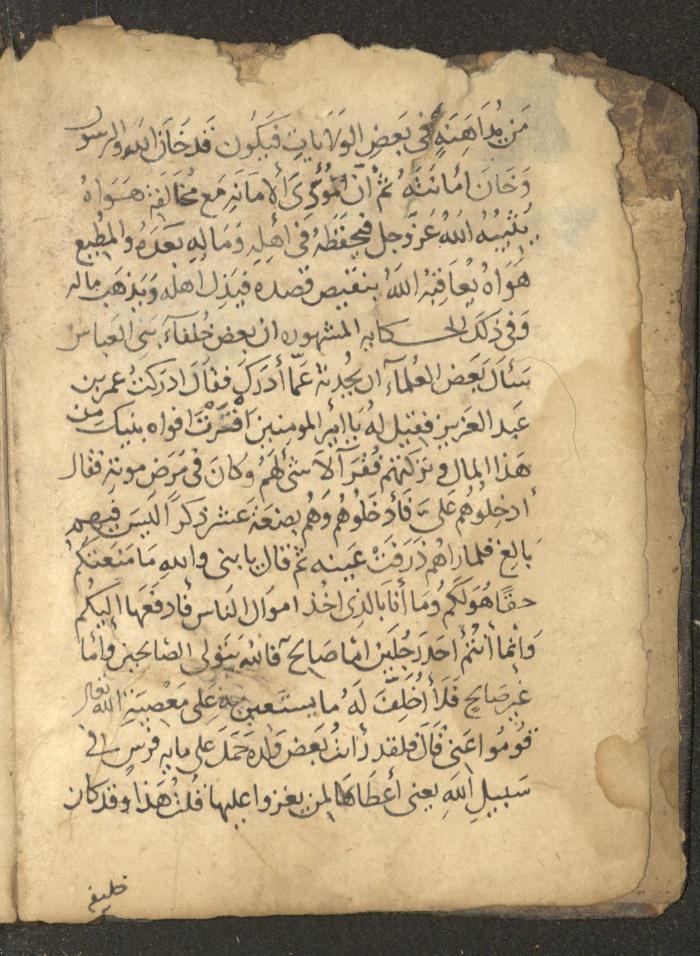 من مداهنة في بعض الولايات فيكون قد خان الله والرسول
وخان امانته ثم ان المؤدي الامانة مع مخالفة هواه
يثيبه الله عز وجل فيحفظه في اهله وماله بعده والمطيع
هواه يعاقبه الله بنقيض قصده فيذل اهله ويذهب ماله
وفي ذلك الحكايه المشهوره ان بعض خلفآء بني العباس
سأل بعض العلمآء ان يحدثه عما أدرك فقال ادركت عمر بن
عبد العزيز فقيل له يا امير المومنين افقرت افواه بنيك من
هذا المال وتركتهم فقرآ لا شئ لهم وكان في مرض موته فقال
أدخلوهم علي فأدخلوهم وهم بضعة عشر ذكراً اليس فيهم
بالغ فلما راهم ذرفت عينه ثم قال يا بني والله ما منعتكم
حقًا هو لكم وما أنا بالذي اخذ اموال الناس فادفعها اليكم
وانما أنتم احد رجلين اما صالح فالله يتولى الصالحين وأما
غير صالح فلا أخلف له ما يستعين به على معصية الله تعالى
قوموا عني قال فلقد رأيت بعض ولده حمل على مايه فرس في
سبيل الله يعني أعطاها لمن يغزوا عليها قلت هذا وقد كان
خليفة